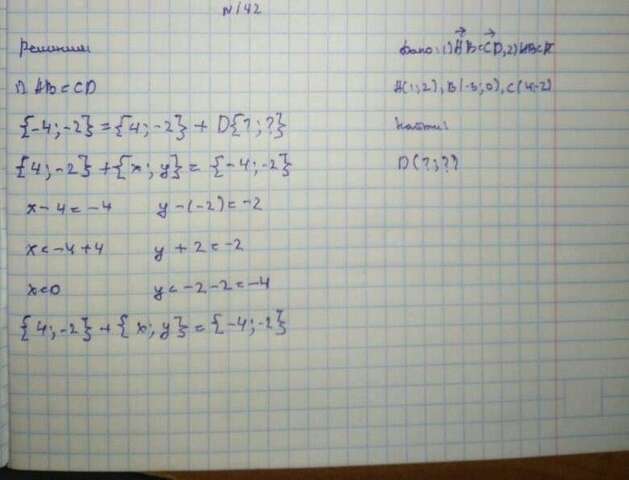 N 142
Решение
1) AB = CD
{-4; -2} = {4; -2} + D{?; ?}
{4; -2} + {x; y} = {-4; -2}
x - 4 = -4 y - (-2) = -2
x = -4 + 4 y + 2 = -2
x = 0 y = -2 - 2 = -4
{4; -2} + {x; y} = {-4; -2}
Дано: 1) AB = CD, 2)
A(1; 2), B(-3; 0), C(4; -2)
Найти:
D(?; ??